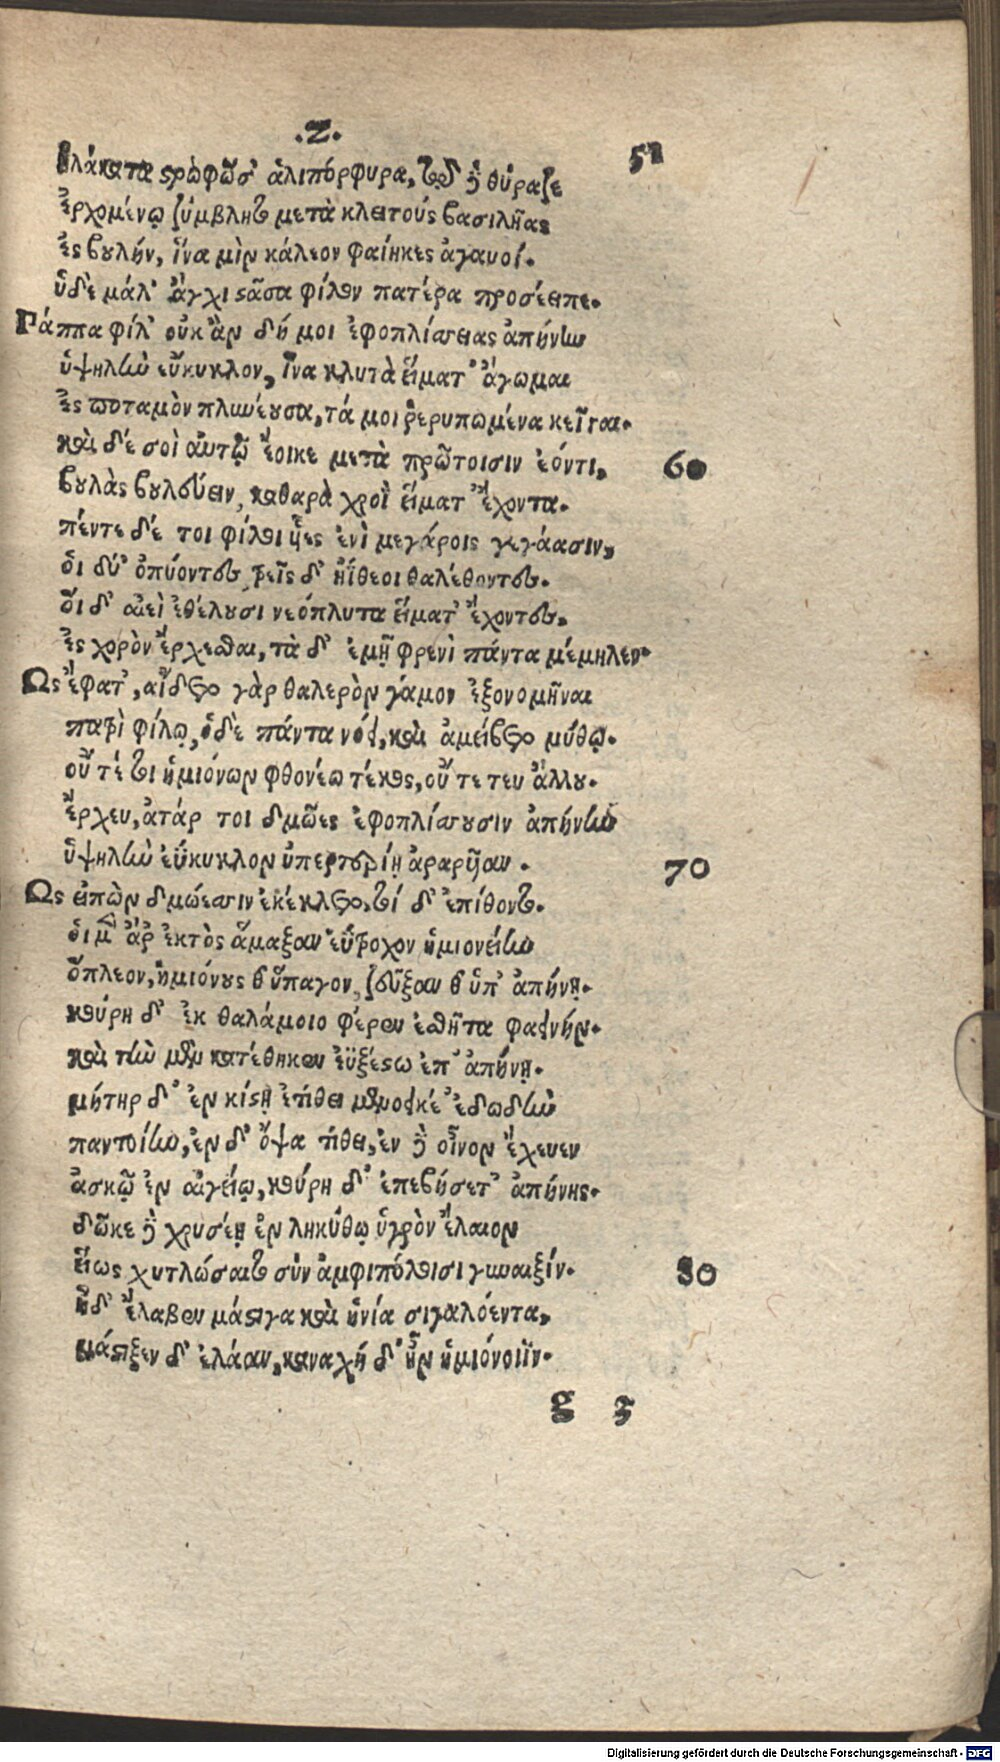 .Ζ. 51
ἠλάκατα στρωφῶσ' ἁλιπόρφυρα, τῷ δὲ θύραζε
ἐρχομένῳ ξύμβλητο μετὰ κλειτοὺς βασιλῆας
ἐς βουλήν, ἵνα μὶν κάλεον φαίηκες ἀγαυοί.
ἡ δὲ μάλ' ἄγχι στᾶσα φίλον πατέρα προσέειπε.
Πάππα φίλ' οὐκ ἂν δή μοι ἐφοπλίσσειας ἀπήνην
ὑψηλὴν εὔκυκλον, ἵνα κλυτὰ εἵματ' ἄγωμαι
ἐς ποταμὸν πλυνέουσα, τά μοι ῥερυπωμένα κεῖται.
καὶ δέ σοὶ αὐτῷ ἔοικε μετὰ πρώτοισιν ἐόντι, 60
βουλὰς βουλεύειν, καθαρὰ χροῒ εἵματ' ἔχοντα.
πέντε δέ τοι φίλοι υἷες ἐνὶ μεγάροις γεγάασιν,
οἱ δύ' ὀπύοντες, τρεῖς δ' ἠΐθεοι θαλέθοντες.
οἵ δ' αἰεὶ ἐθέλουσι νεόπλυτα εἵματ' ἔχοντες,
ἐς χορὸν ἔρχεσθαι, τὰ δ' ἐμῇ φρενὶ πάντα μέμηλεν.
Ως ἔφατ', αἴδετο γὰρ θαλερὸν γάμον ἐξονομῆναι
πατρὶ φίλῳ, ὁ δὲ πάντα νόει, καὶ ἀμείβετο μύθῳ.
οὔ τέ τοι ἡμιόνων φθονέω τέκος, οὔ τε τευ ἄλλου.
ἔρχευ, ἀτάρ τοι δμῶες ἐφοπλίσσουσιν ἀπήνην
ὑψηλὴν εὔκυκλον ὑπερτερίῃ ἀραρῦιαν. 70
Ως εἰπὼν δμώεσσιν ἐκέκλετο, τοί δ' ἐπίθοντο.
οἱ μὲν ἄρ' ἐκτὸς ἅμαξαν ἐΰτροχον ἡμιονείην
ὅπλεον, ἡμιόνους θ' ὕπαγον, ζεῦξαν θ' ὑπ' ἀπήνῃ.
κούρη δ' ἐκ θαλάμοιο φέρεν ἐσθῆτα φαεινήν.
καὶ τὴν μὲν κατέθηκεν ἐϋξέστῳ ἐπ' ἀπήνῃ.
μήτηρ δ' ἐν κίστῃ ἐτίθει μενοεικέ' ἐδωδὴν
παντοίην, ἐν δ' ὄψα τίθει, ἐν δὲ οἶνον ἔχευεν
ἀσκῷ ἐν αἰγείῳ, κούρη δ' ἐπεβήσετ' ἀπήνης.
δῶκε δὲ χρυσέῃ ἐν ληκύθῳ ὑγρὸν ἔλαιον
εἵως χυτλώσαιτο σὺν ἀμφιπόλοισι γυναιξίν. 80
ἡ δ' ἔλαβεν μάστιγα καὶ ἡνία σιγαλόεντα,
μάστιξεν δ' ἐλάαν, καναχή δ' ἦν ἡμιόνοιϊν.
g 3
Digitalisierung gefördert durch die Deutsche Forschungsgemeinschaft - DFG